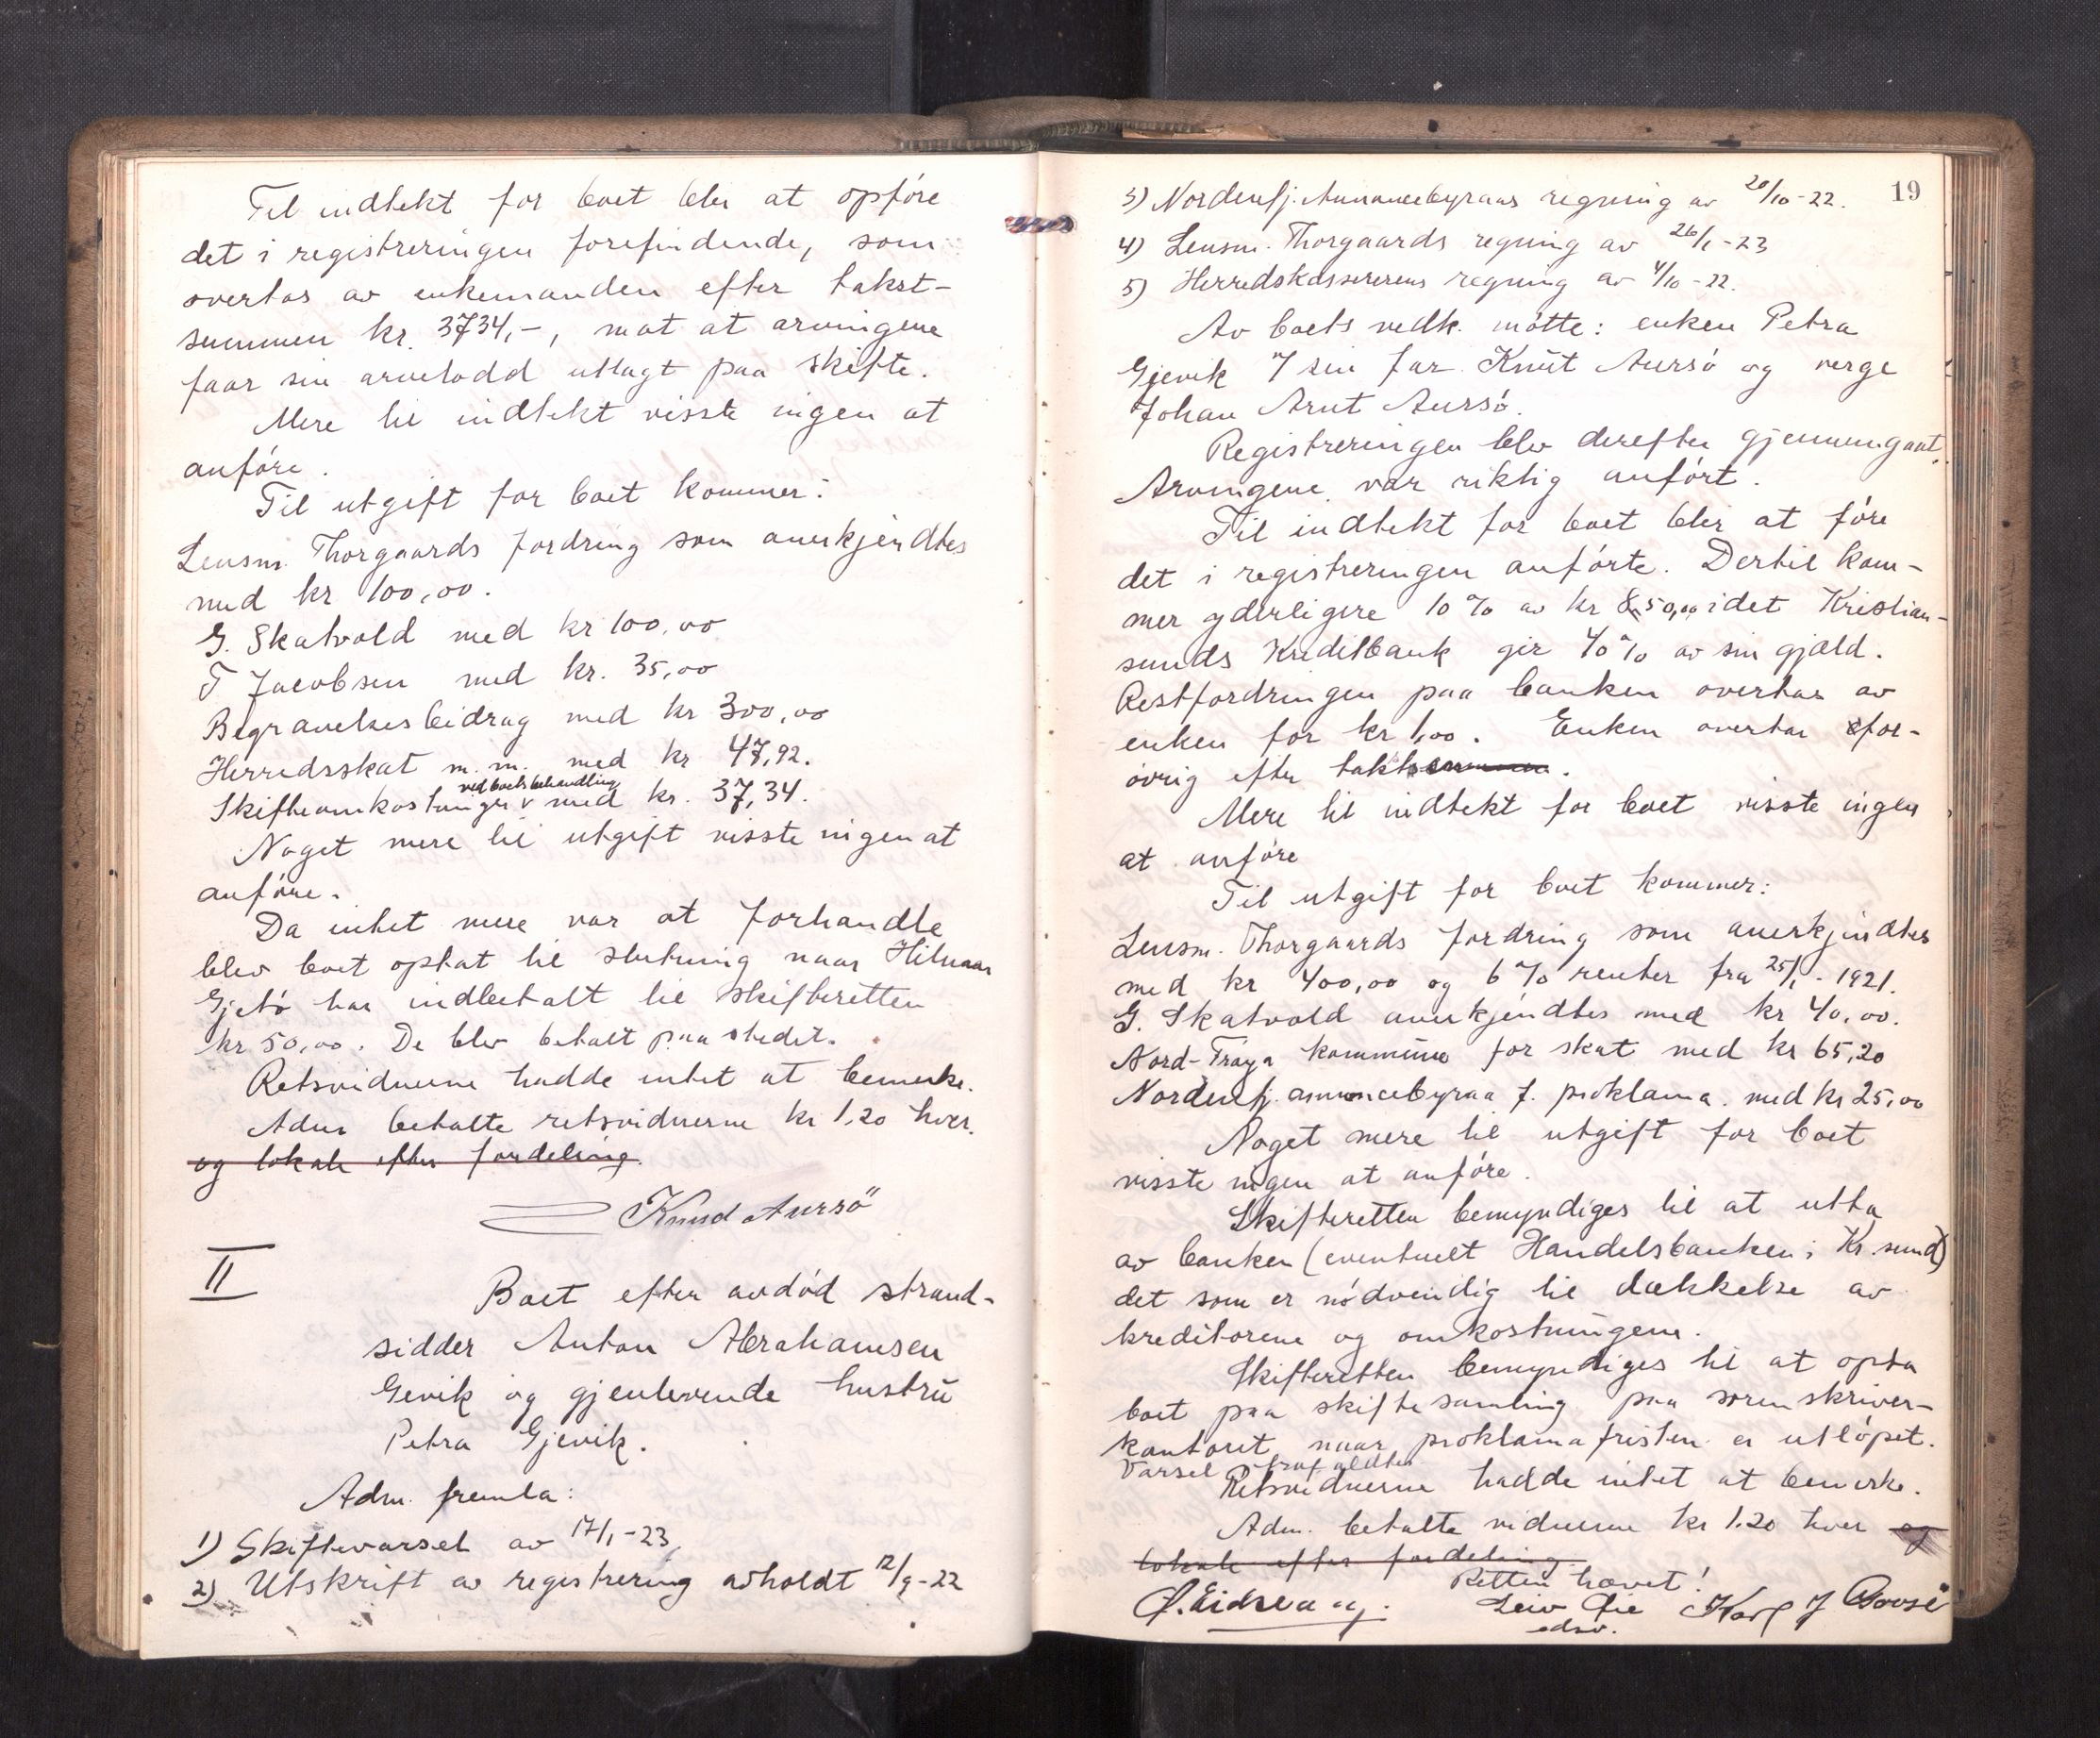 Til indtekt for boet blir at opføre
det i registreringen forefindende, som
overtas av enkemanden efter takst-
summen kr. 3734,-, mot at arvingene
faar sin arvelodd utlagt paa skifte.
Mere til indtekt visste ingen at
anføre.
Til utgift for boet kommer:
Lensm. Thorgaards fordring som anerkjendtes
med kr 100,00.
G. Skatvold med kr 100,00
T Jacobsen med kr. 35,00
Begravelsesbidrag med kr 300,00
Herredsskat m.m. med kr 47,92.
ved boets behandling
Skifteomkostninger v med kr. 37,34.
Noget mere til utgift visste ingen at
anføre.
Da intet mere var at forhandle
blev boet optat til slutning naar Hilmar
Gjetø har indbetalt til skifteretten
kr 50,00. De blev betalt paa stedet.
Retsvidnerne hadde intet at bemerke.
Adm betalte retsvidnerne kr 1.20 hver.
og lokale efter fordeling.
Knud Aursö
II
Boet efter avdød strand-
sidder Anton Abrahamsen
Gevik og gjenlevende hustru
Petra Gjevik.
Adm. fremla:
1) Skiftevarsel av 17/1-23
2) Utskrift av registrering avholdt 12/9-22
19
3) Nordenfj. Annoncebyraas regning av 20/10-22.
4) Lensm. Thorgaards regning av 26/1-23
5) Herredskassererens regning av 4/10-22.
Av boets vedk. møtte: enken Petra
Gjevik 7 sin far Knut Aursø og verge
Johan Arnt Aursø.
Registreringen blev derefter gjennemgaat.
Arvingene var riktig anført.
Til indtekt for boet blir at føre
det i registreringen anførte. Dertil kom-
mer yderligere 10 % av kr 850,00 idet Kristian-
sunds Kreditbank gir 40 % av sin gjæld.
Restfordringen paa banken overtar av
enken for kr 1,00. Enken overtar for-
øvrig efter takstsummen.
Mere til indtekt for boet visste ingen
at anføre
Til utgift for boet kommer:
Lensm. Thorgaards fordring som anerkjendtes
med kr 400,00 og 6 % renter fra 25/1-1921.
G. Skatvold anerkjendtes med kr 40,00.
Nord-Frøya kommune for skat med kr 65,20
Nordenfj. annoncebyraa f. proklama. med kr 25,00
Noget mere til utgift for boet
visste ingen at anføre.
Skifteretten bemyndiges til at utta
av banken (eventuelt Handelsbanken i Kr.sund)
det som er nødvendig til dækkelse av
kreditorene og omkostningene.
Skifteretten bemyndiges til at opta
boet paa skiftesamling paa sorenskriver-
kontoret naar proklamafristen er utløpet.
Varsel frafaldtes
Retsvidnerne hadde intet at bemerke.
Adm. betalte vidnerne kr 1.20 hver og
lokale efter fordeling.
Retten hævet!
edsv.
Karl J